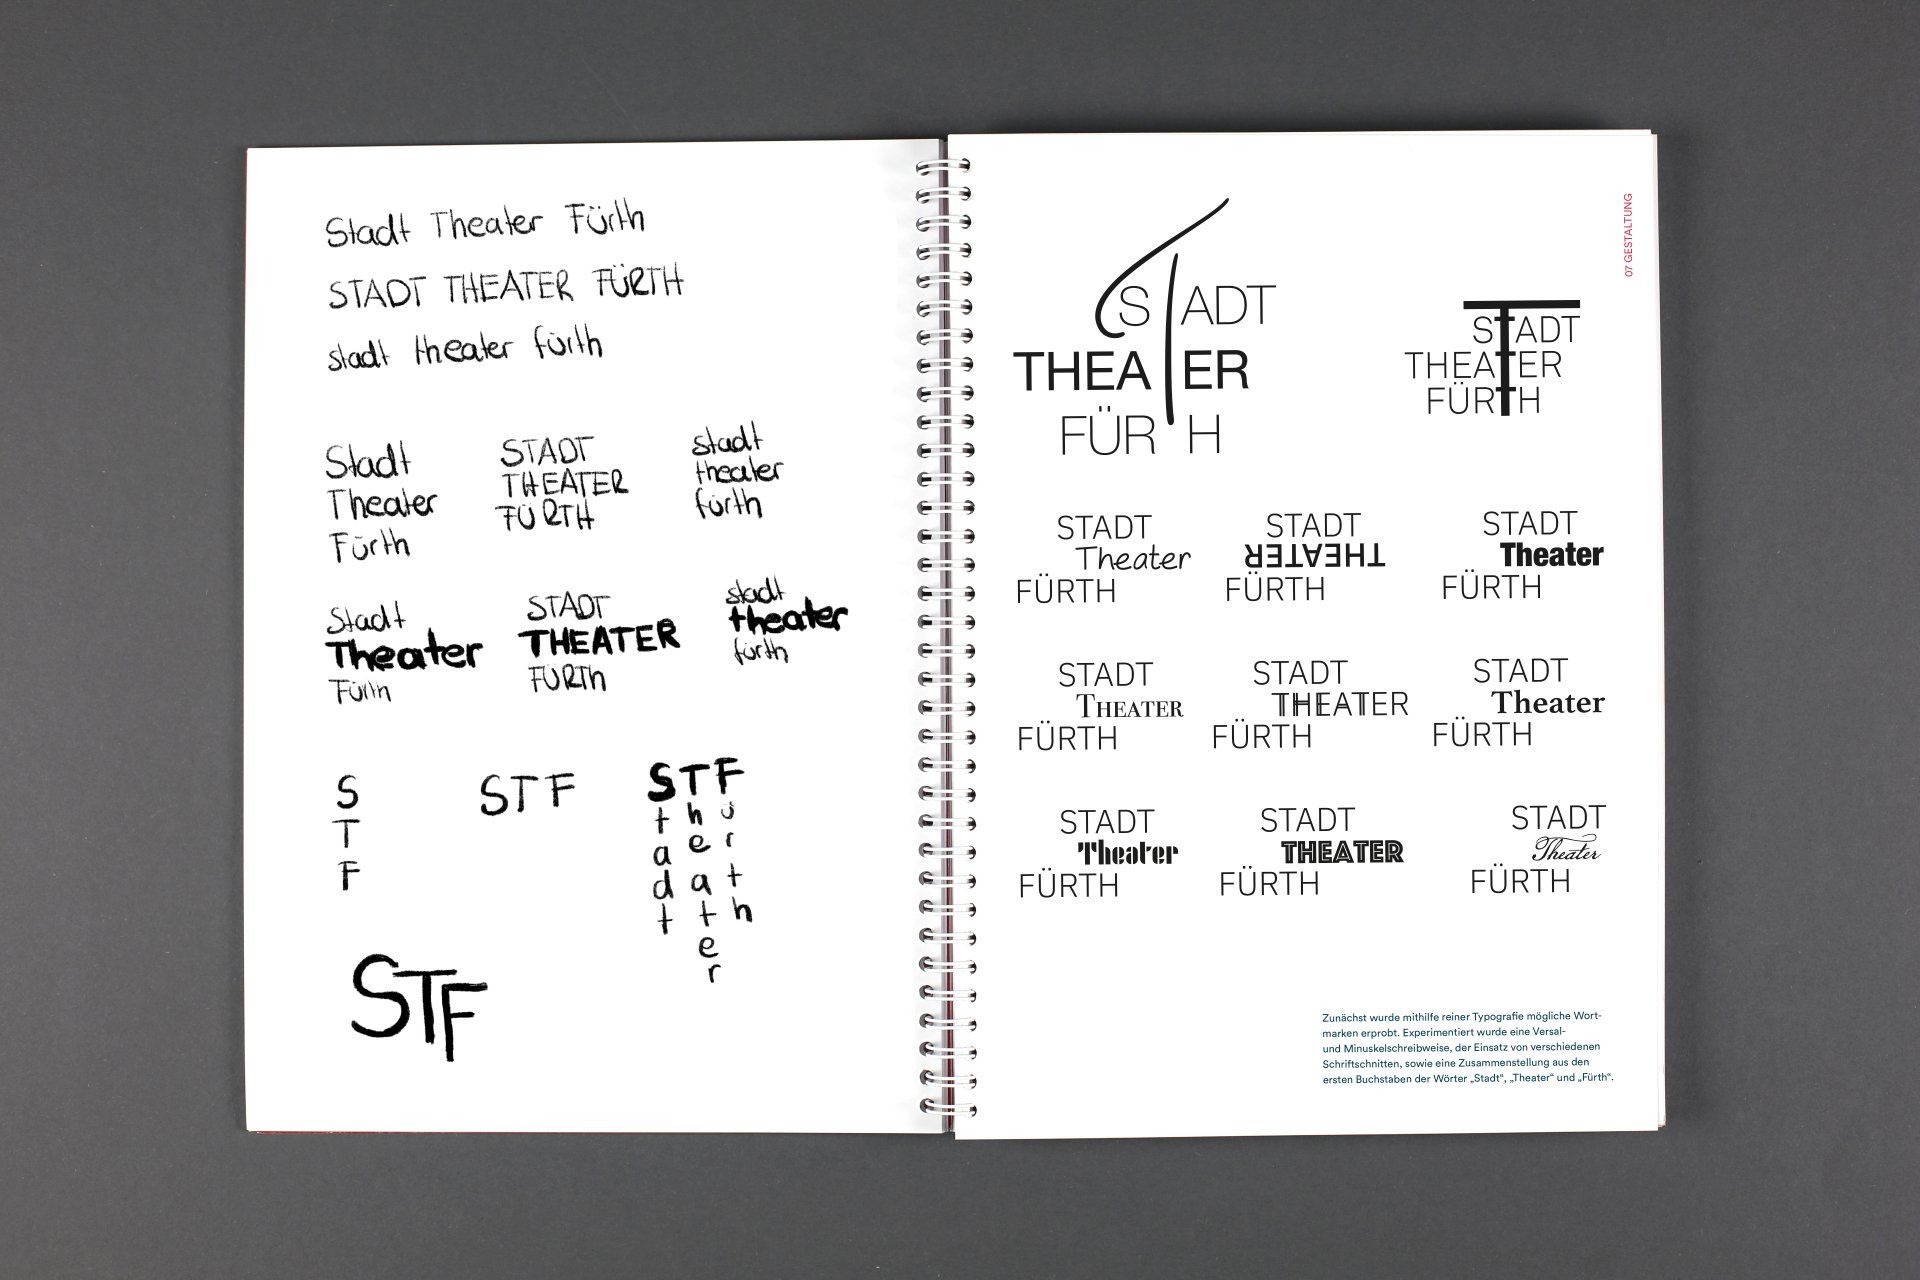 Stadt Theater Fürth
STADT THEATER FÜRTH
stadt theater fürth
Stadt
Theater
Fürth
STADT
THEATER
FÜRTH
stadt
theater
fürth
Stadt
Theater
Fürth
STADT
THEATER
FÜRTh
stadt
theater
fürth
S
T
F
STF
STF
tadt
heater
ürth
STF
07 GESTALTUNG
STADT
THEATER
FÜRTH
STADT
THEATER
FÜRTH
STADT
Theater
FÜRTH
STADT
THEATER
FÜRTH
STADT
Theater
FÜRTH
STADT
THEATER
FÜRTH
STADT
THEATER
FÜRTH
STADT
Theater
FÜRTH
STADT
Theater
FÜRTH
STADT
THEATER
FÜRTH
STADT
Theater
FÜRTH
Zunächst wurde mithilfe reiner Typografie mögliche Wort-
marken erprobt. Experimentiert wurde eine Versal-
und Minuskelschreibweise, der Einsatz von verschiedenen
Schriftschnitten, sowie eine Zusammenstellung aus den
ersten Buchstaben der Wörter „Stadt“, „Theater“ und „Fürth“.